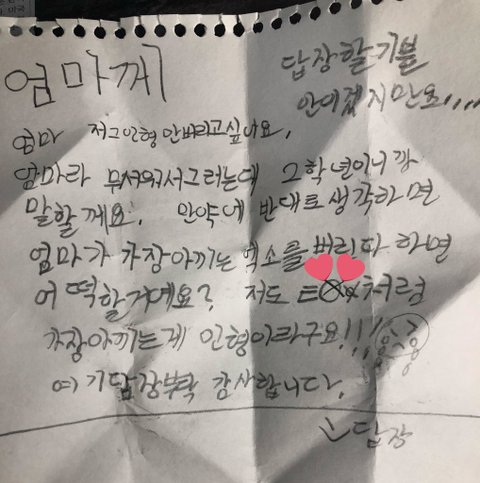 엄마께
답장할기분
안이겠지만요....
엄마 저그인형안버리고싶어요.
엄마라 무서워서그러는데 2학년이니깐
말할께요. 만약에 반대로생각하면
엄마가 가장아끼는 엑소를버린다 하면
어떡할거예요? 저도 EXO처럼
가장아끼는게 인형이라구요!!!
흥흥흥
여기답장부탁 감사합니다.
답장